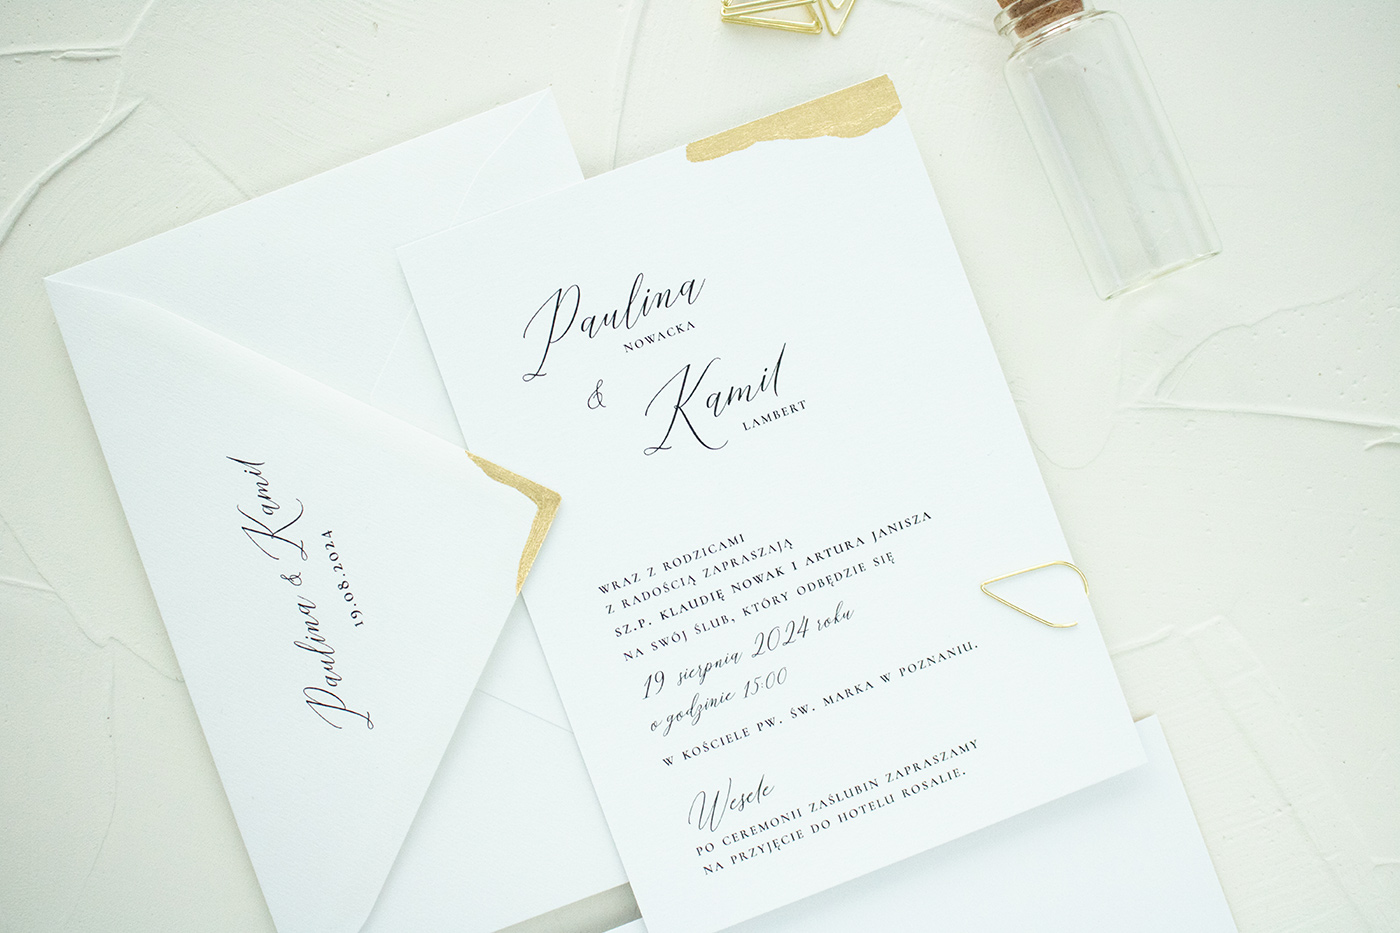 Paulina & Kamil
19.08.2024
Paulina
NOWACKA
& Kamil
LAMBERT
WRAZ Z RODZICAMI
Z RADOŚCIĄ ZAPRASZAJĄ
SZ.P. KLAUDIĘ NOWAK I ARTURA JANISZA
NA SWÓJ ŚLUB, KTÓRY ODBĘDZIE SIĘ
19 sierpnia 2024 roku
o godzinie 15:00
W KOŚCIELE PW. ŚW. MARKA W POZNANIU.
Wesele
PO CEREMONII ZAŚLUBIN ZAPRASZAMY
NA PRZYJĘCIE DO HOTELU ROSALIE.